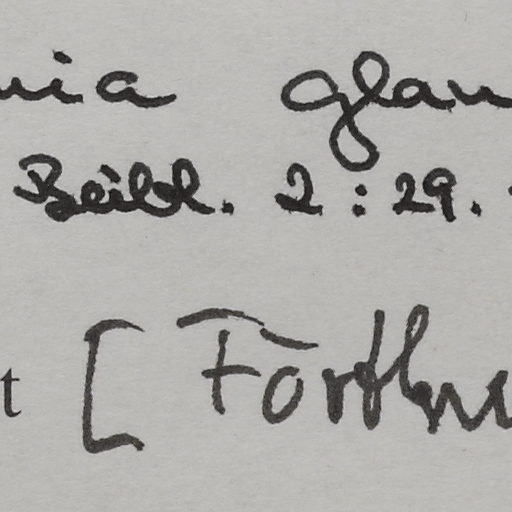 nia glau
Beibl. 2:29.
t [ Forthm